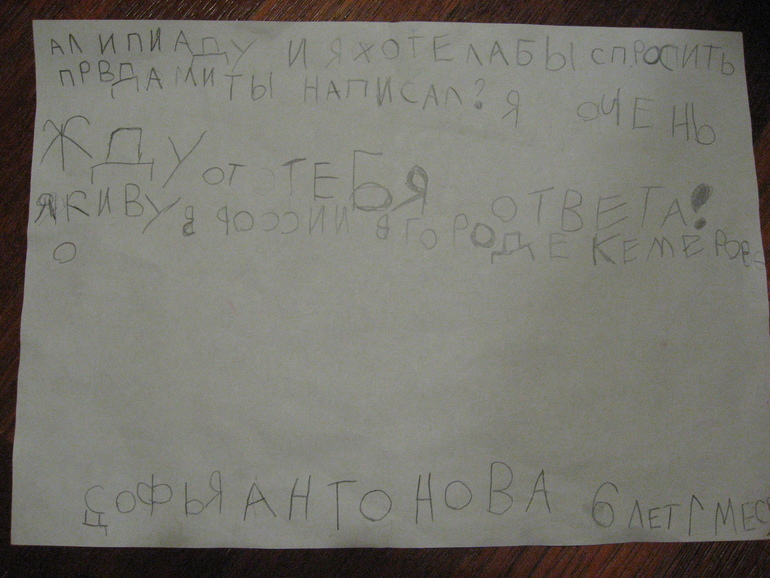 АЛИПИАДУ И Я ХОТЕЛА БЫ СПРОСИТЬ
ПРВДА МИ ТЫ НАПИСАЛ? Я ОЧЕНЬ
ЖДУ ОТ ТЕБЯ ОТВЕТА!
Я ЖИВУ В РОССИИ В ГОРОДЕ КЕМЕРОВ
О
СОФЬЯ АНТОНОВА 6 ЛЕТ 1 МЕС